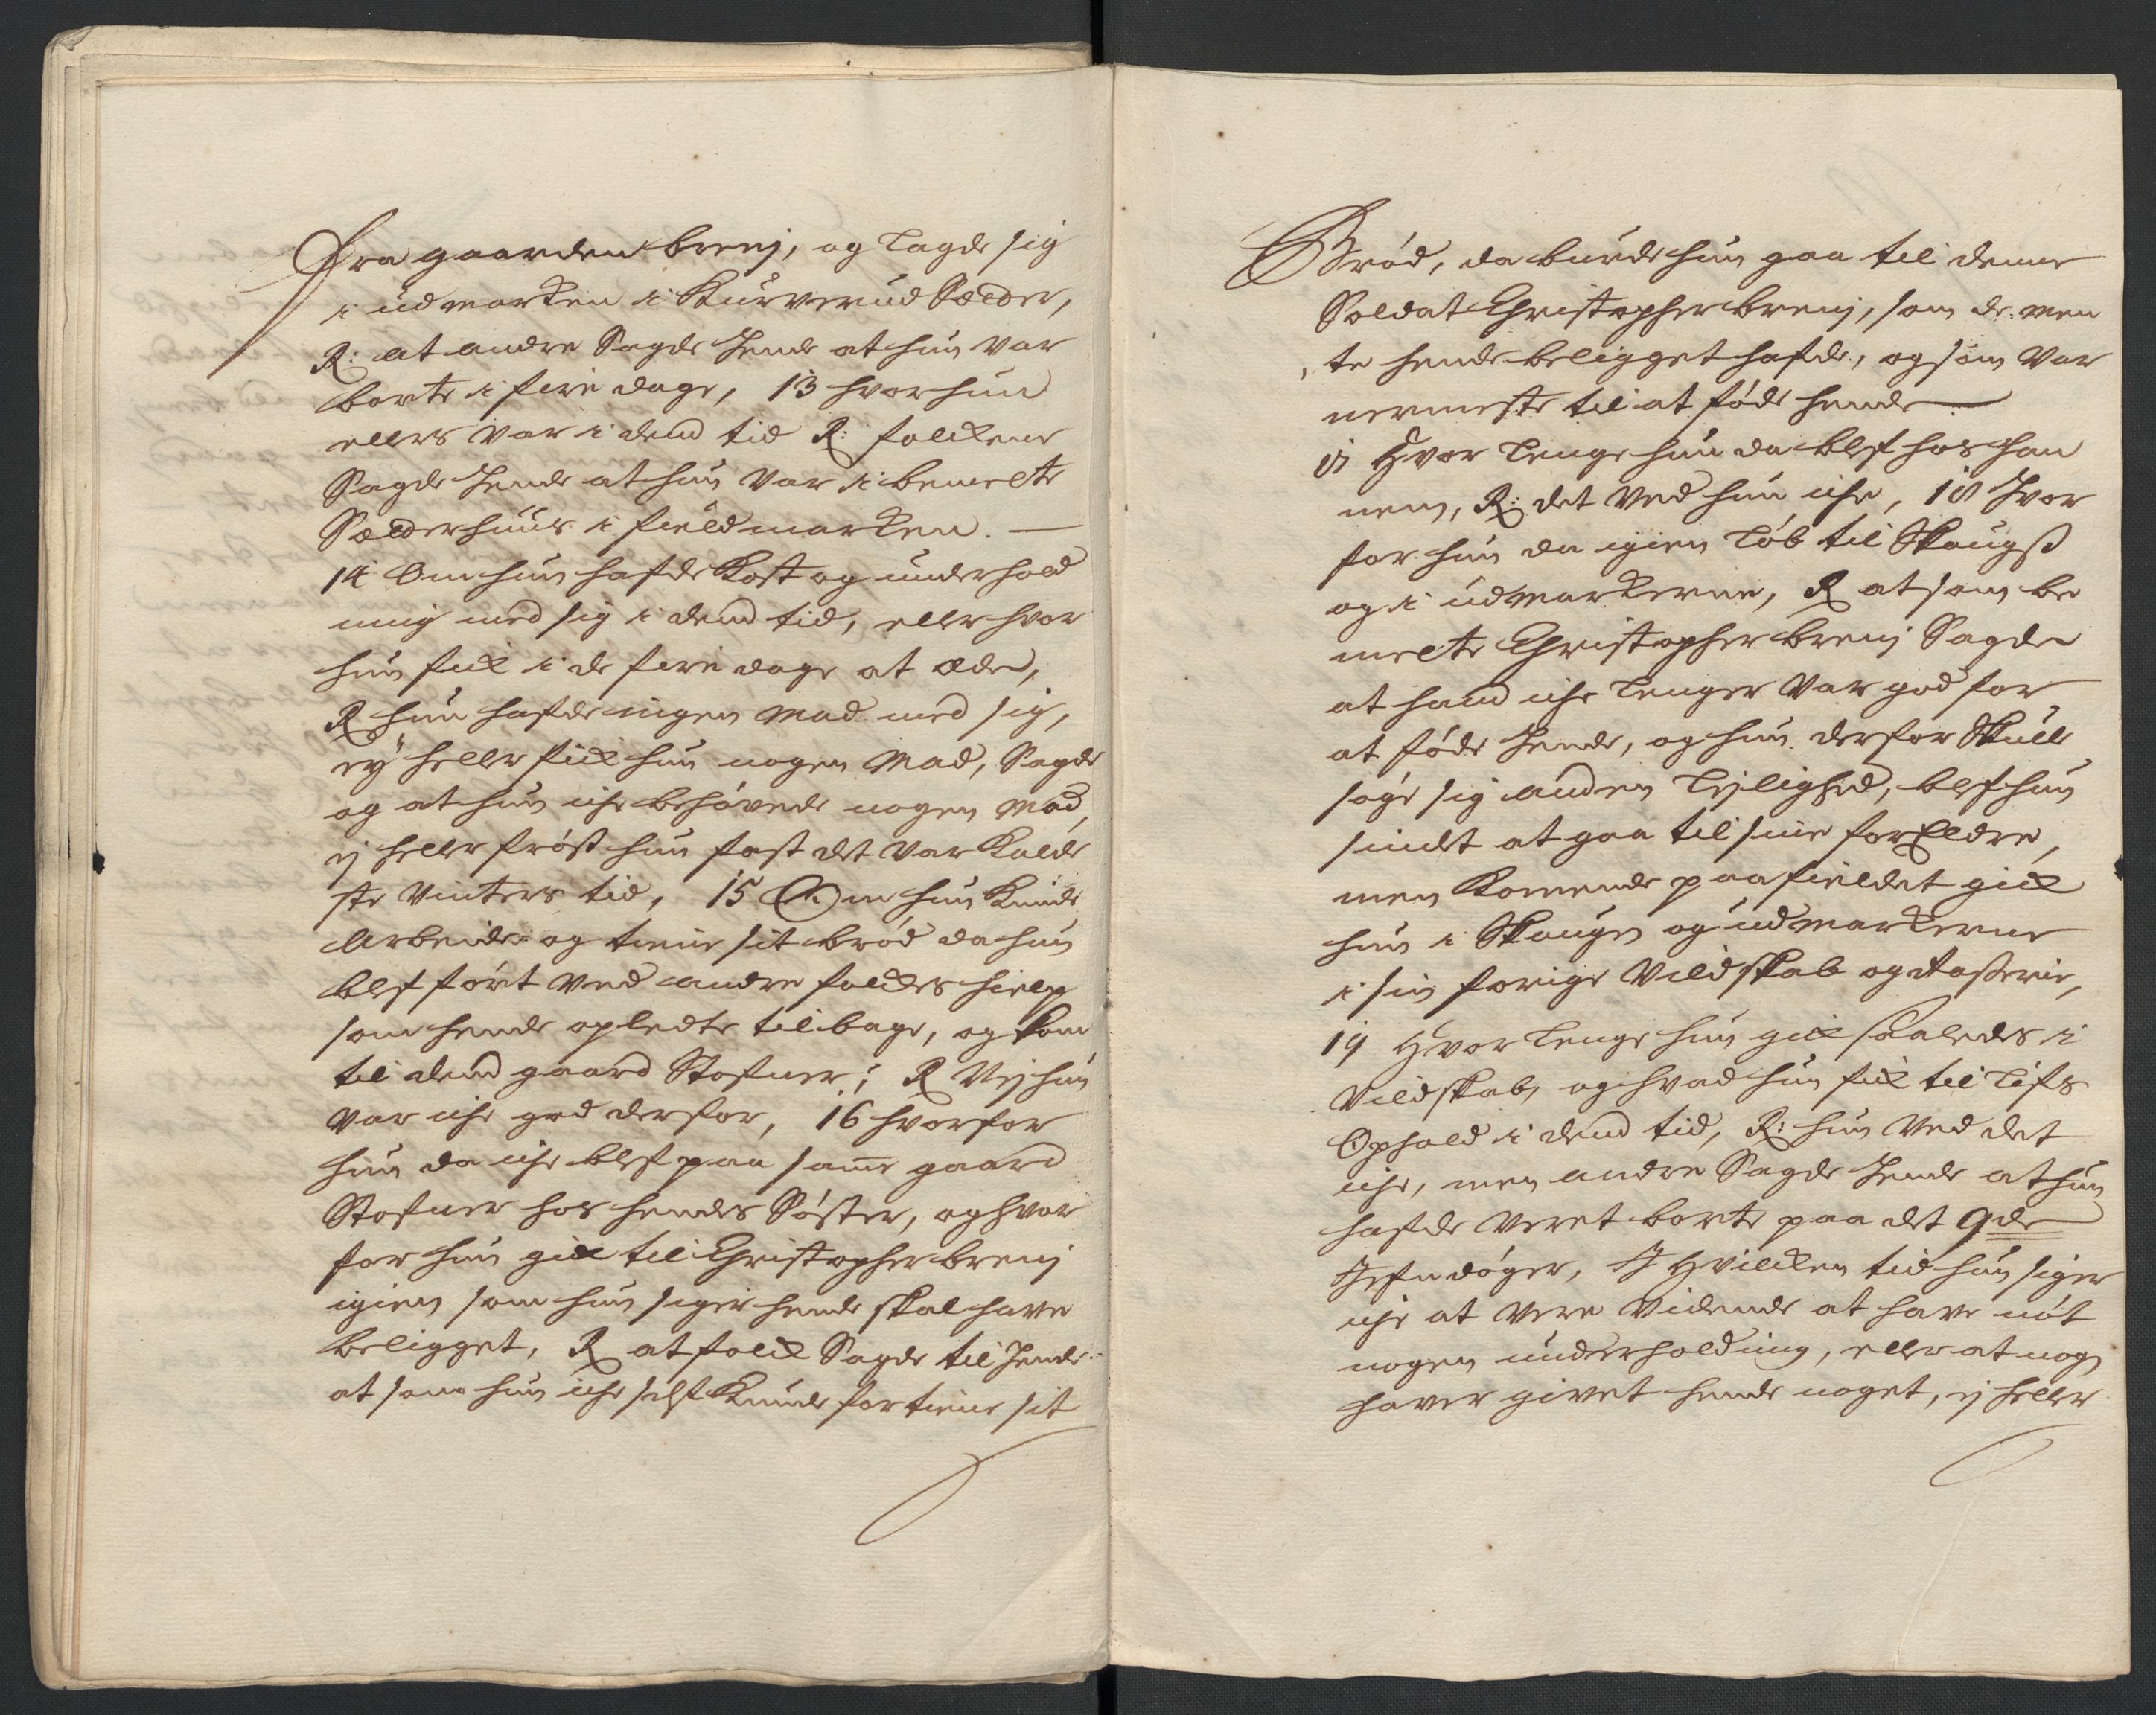 Fra gaarden breni, og lagde sig
i udmarken i Kurverud Sæder,
R: at andre Sagde hende at hun var
borte i fire dage, 13 hvor hun
ellers var i dend tid R: folckene
Sagde hende at hun var i bemelte
Sæderhuus i fieldmarken. —
14 Om hun hafde Kost og underhold
ning med sig i dend tid, eller hvor
hun fick i de fire dage at æde,
R hun hafde ingen Mad med sig,
eÿ heller fick hun nogen Mad, Sagde
og at hun iche behövede nogen Mad,
ej heller frös hun fast det var Kolde
ste Vinters tid, 15 Om hun Kunde
Arbeide og tiene sit bröd da hun
blef fört ved andre folckes hielp
som hende opledte tilbage, og kom
til dend gaard Stofner; R Nej hun
var iche god derfor, 16 hvorfor
hun da iche blef paa samme gaard
Stofner hos hendes Söster, og hvor
for hun gick til Christopher breni
igien som hun siger hende skal have
beligget, R at folck Sagde til hende
at som hun iche self Kunde fortiene sit
Bröd, da burde hun gaa til denne
Soldat Christopher breni, som de men
te hende beligget hafde, og som var
nermeste til at föde hende —
17 Hvor lenge hun da blef hos han
nem, R: det ved hun iche, 18 hvor
for hun da igien löb til Skougs
og i udmarkerne, R at som be
melte Christopher breni Sagde
at hand iche lenger var god for
at föde hende, og hun derfor Skulle
söge sig anden Lejlighed, blef hun
sindet at gaa til sine forEldre,
men Komende paa fieldet gick
hun i Skougen og udmarkerne
i sin forige Vildskab og Raserie,
19 Hvor lenge hun gick saaledes i
Vildskab, og hvad hun fick til Lifs
Ophold i dend tid, R: hun ved det
iche, men andre Sagde hende at hun
hafde veret borte paa det 9de
Jefn döger, J Hvilcken tid hun siger
iche at vere vidende at have nöt
nogen underholdning, eller at nogen
haver givet hende noget, ej heller